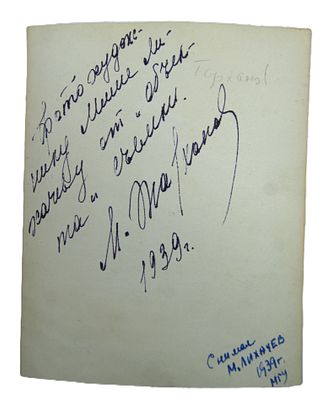 Фото худож-
нику Мише Ли-
хачеву от „объек-
та“ съемки.
М. Тарханов
1939 г.
Тарханов
Снимал
М. Лихачев
1939 г.
МГУ